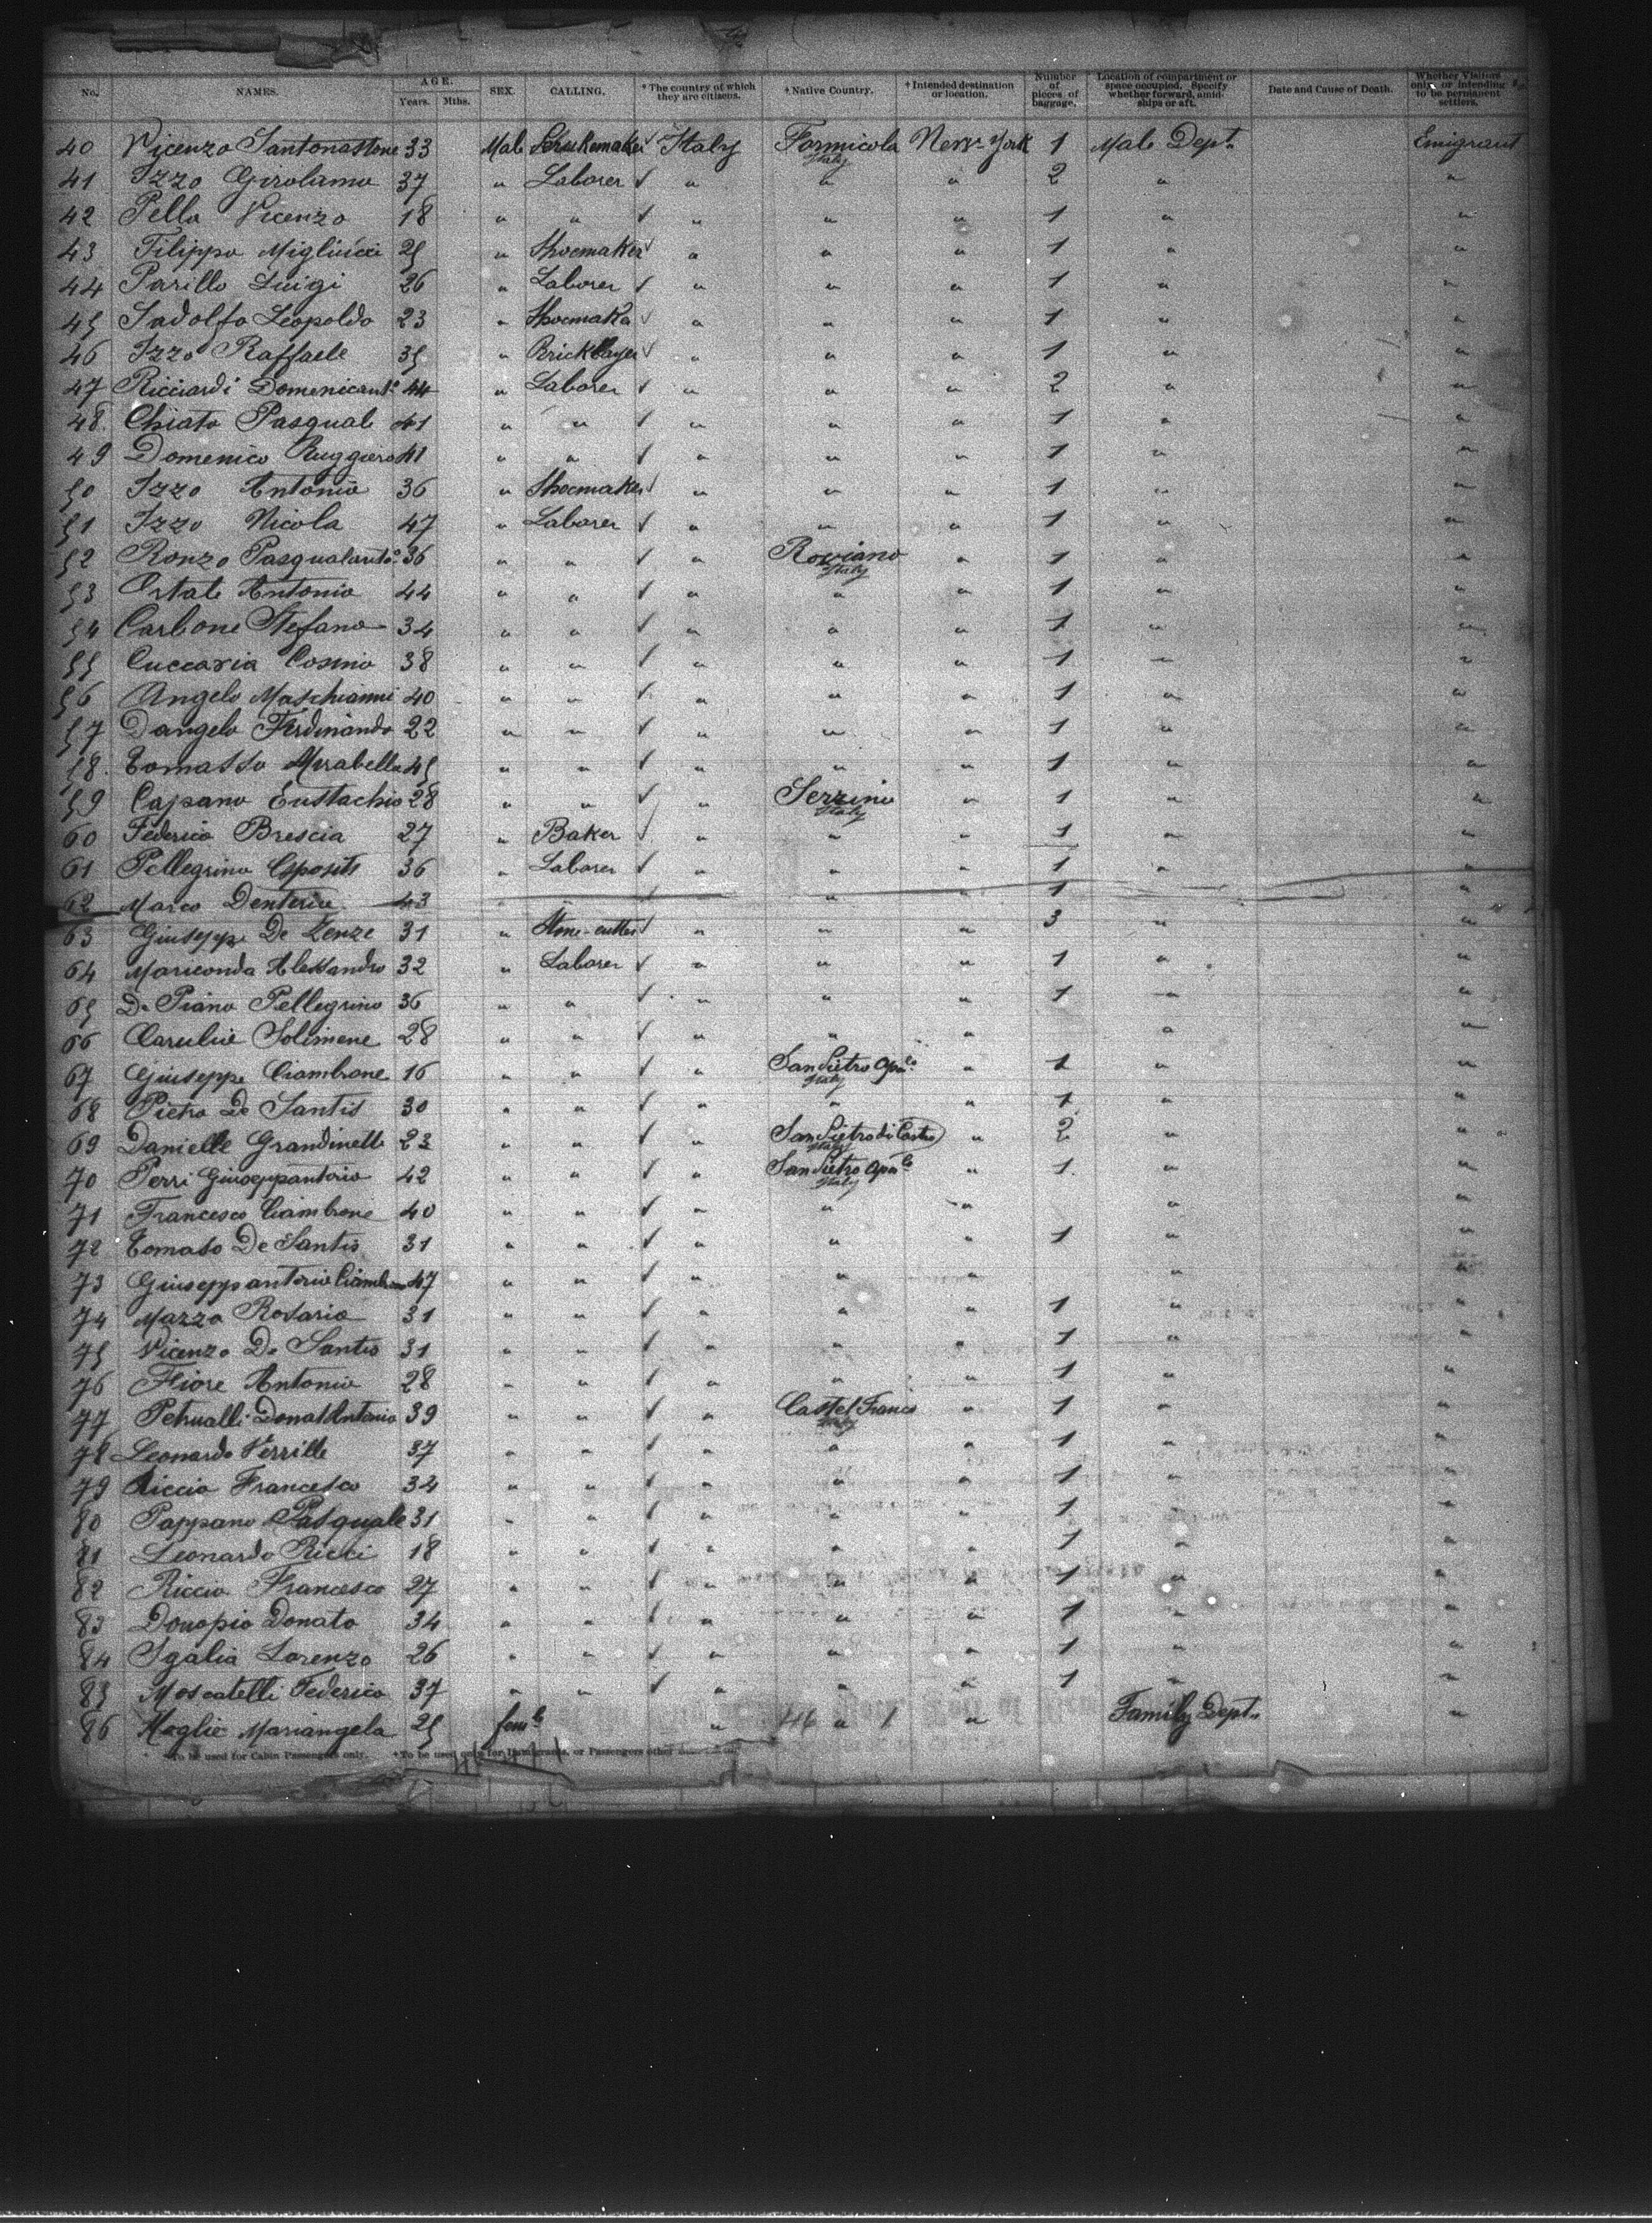 No. NAMES. AGE. Years. Mths. SEX. CALLING. *The country of which they are citizens. †Native Country. †Intended destination or location. Number of pieces of baggage. Location of compartment or space occupied. Specify whether forward, amidships or aft. Date and Cause of Death. Whether Visitors only, or intending to be permanent settlers.
40 Vicenzo Santonastone 33 Male ✓ Italy Formicola Italy New York 1 Male Dept. Emigrant
41 Izzo Girolamo 37 " Laborer ✓ " " " 2 " "
42 Pella Vicenzo 18 " " ✓ " " " 1 " "
43 Filippo Migliucci 25 " Shoemaker ✓ " " " 1 " "
44 Parillo Luigi 26 " Laborer ✓ " " " 1 " "
45 Sadolfo Leopoldo 23 " Shoemaker ✓ " " " 1 " "
46 Izzo Raffaele 35 " Bricklayer ✓ " " " 1 " "
47 Ricciardi Domenicanto 44 " Laborer ✓ " " " 2 " "
48. Chiato Pasquale 41 " " ✓ " " " 1 " "
49 Domenico Ruggiero 41 " " ✓ " " " 1 " "
50 Izzo Antonio 36 " Shoemaker ✓ " " " 1 " "
51 Izzo Nicola 47 " Laborer ✓ " " " 1 " "
52 Ronzo Pasqualanto 36 " " ✓ " Roviano Italy " 1 " "
53 Ortale Antonio 44 " " ✓ " " " 1 " "
54 Carbone Stefano 34 " " ✓ " " " 1 " "
55 Cuccaria Cosmo 38 " " ✓ " " " 1 " "
56 Angelo Maschianni 40 " " ✓ " " " 1 " "
57 Dangelo Ferdinando 22 " " ✓ " " " 1 " "
58. Tomasso Mirabella 45 " " ✓ " " " 1 " "
59 Capano Eustachio 28 " " ✓ " Serrino Italy " 1 " "
60 Federico Brescia 27 " Baker ✓ " " " 1 " "
61 Pellegrino Esposito 36 " Laborer ✓ " " " 1 " "
62 Marco Denterio 43 " " ✓ " " " 1 "
63 Giuseppe De Zenze 31 " Stone-cutter ✓ " " " 3 " "
64 Mariconda Alessandro 32 " Laborer ✓ " " " 1 " "
65 De Piano Pellegrino 36 " " ✓ " " " 1 " "
66 Solimene 28 " " ✓ " " " " "
67 Giuseppe Ciambrone 16 " " ✓ " San Pietro Apo. Italy " 1 " "
68 Pietro De Santis 30 " " ✓ " " " 1 " "
69 Danielle Grandinelli 23 " " ✓ " San Pietro di Castro Italy " 2 " "
70 Perri Giuseppantonio 42 " " ✓ " San Pietro Apo. Italy " 1 " "
71 Francesco Ciambrone 40 " " ✓ " " " " "
72 Tomaso De Santis 31 " " ✓ " " " 1 " "
73 Giuseppantonio Ciambrone 47 " " ✓ " " " " "
74 Mazza Rosario 31 " " ✓ " " " 1 " "
75 Vicenzo De Santis 31 " " ✓ " " " 1 " "
76 Fiore Antonio 28 " " ✓ " " " 1 " "
77 Petrualli Donat Antonio 39 " " ✓ " Castel Franco Italy " 1 " "
78 Leonardo Verrille 37 " " ✓ " " " 1 " "
79 Riccio Francesco 34 " " ✓ " " " 1 " "
80 Pappano Pasquale 31 " " ✓ " " " 1 " "
81 Leonardo Ricci 18 " " ✓ " " " 1 " "
82 Riccio Francesco 27 " " ✓ " " " 1 " "
83 Donopio Donato 34 " " ✓ " " " 1 " "
84 Sgalia Lorenzo 26 " " ✓ " " " 1 " "
85 Moscatelli Federico 37 " " ✓ " " " 1 " "
86 Moglie Mariangela 25 fem. " " " Family Dept. "
*To be used for Cabin Passengers only. †To be used only for Immigrants, or Passengers other